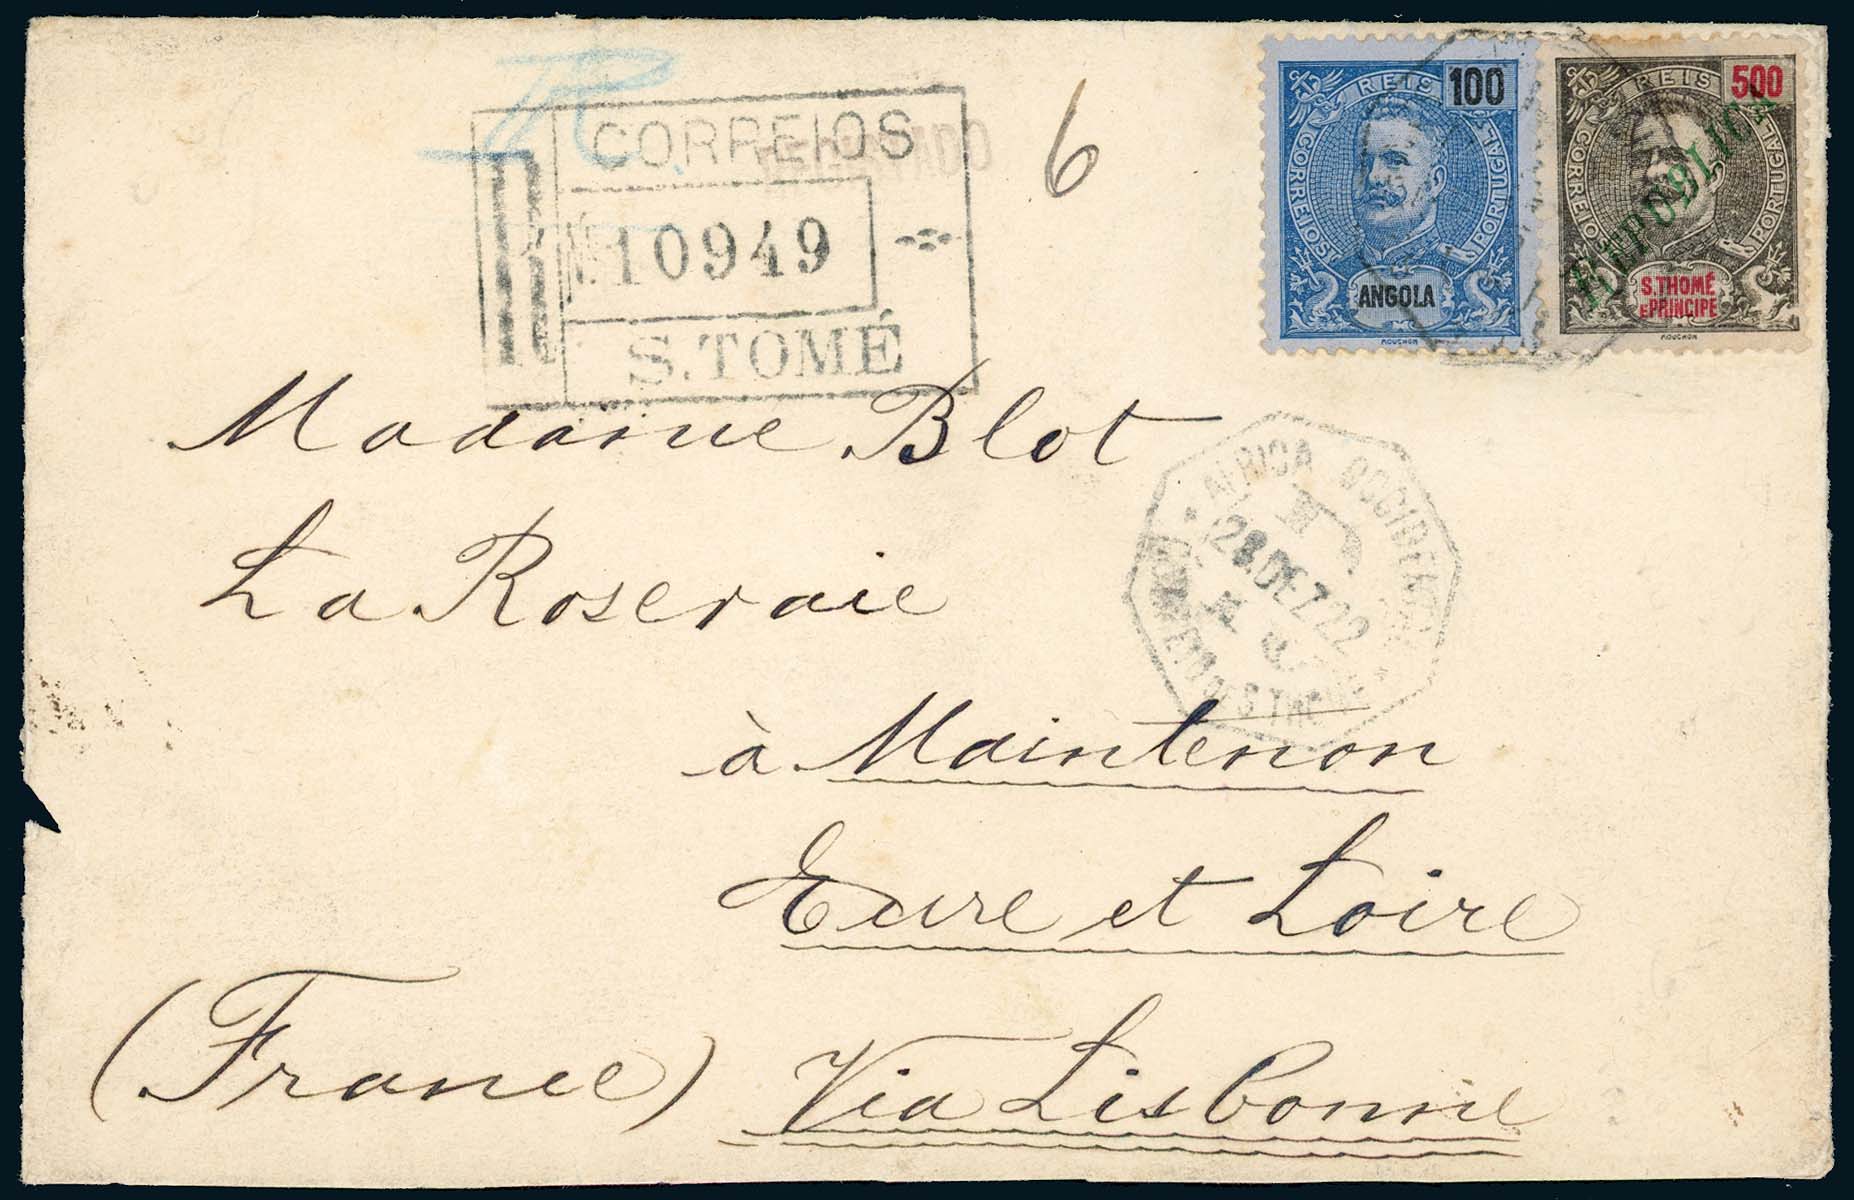 R
CORREIOS
REGISTADO
R
Nº 10949
S. TOMÉ
6
REIS 100
CORREIOS PORTUGAL
ANGOLA
MOUCHON
REIS 500
CORREIOS PORTUGAL
REPUBLICA
S. THOMÉ
E PRINCIPE
MOUCHON
Madame Blot
La Roseraie
AFRICA OCCIDENTAL
28 DEZ 22
S THOMÉ
à Maintenon
Eure et Loire
(France) Via Lisbonne